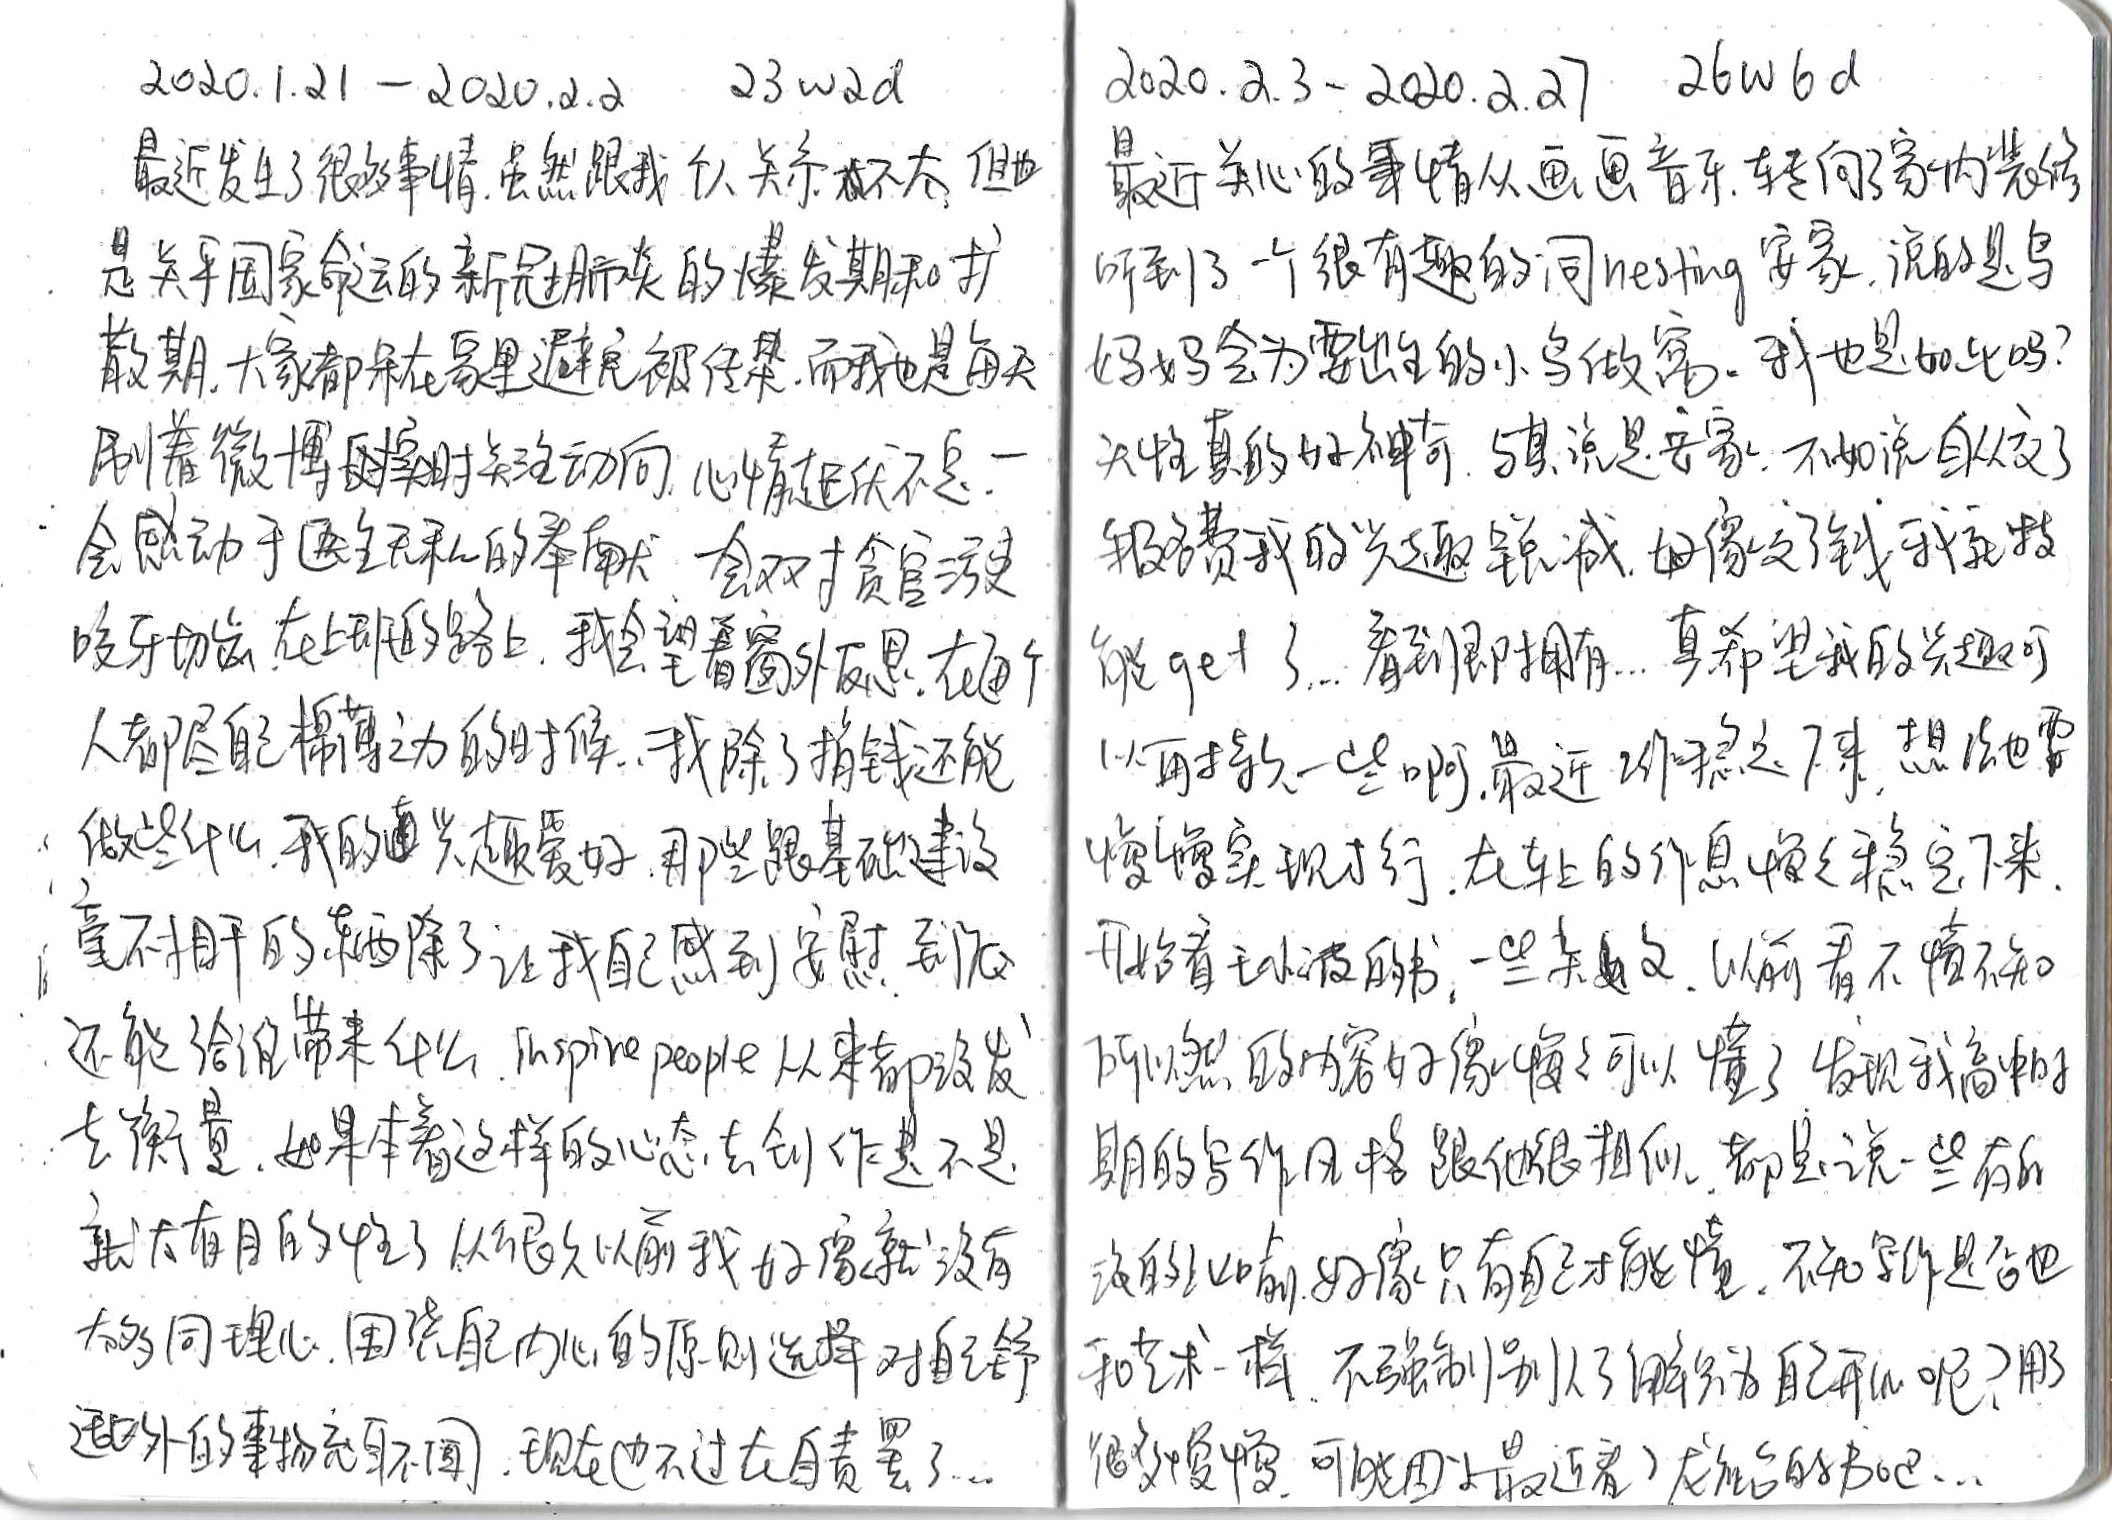 2020.1.21 — 2020.2.2 23w2d
最近发生了很多事情.虽然跟我个人关系不大,但也
是关乎国家命运的新冠肺炎的爆发期和扩
散期.大家都呆在家里避免被传染.而我也是每天
刷着微博实时关注动向.心情起伏不定.一
会感动于医生无私的奉献 会对贪官污吏
咬牙切齿.在上班的路上.我会望着窗外反思.在每个
人都尽自己棉薄之力的时候...我除了捐钱还能
做些什么.我的兴趣爱好.那些跟基础建设
毫不相干的东西除了让我自己感到安慰.到底
还能给谁带来什么.inspire people从来都没发
去衡量.如果本着这样的心态去创作是不是
就太有目的性了从很久以前我好像就没有
太多同理心.围绕自己内心的原则选择对自己舒
适以外的事物充耳不闻.现在也不过在自责罢了...
2020.2.3 - 2020.2.27 26w6d
最近关心的事情从画画音乐.转向了家内装修
听到了一个很有趣的词nesting安家.说的是鸟
妈妈会为要出生的小鸟做窝。我也是如此吗?
天性真的好神奇.与其说是安家.不如说自从交了
报名费我的兴趣锐减.好像交了钱我就技
能get了...看到即拥有...真希望我的兴趣可
以再持久一些啊.最近工作稳定下来.想法也要
慢慢实现才行.在车上的作息慢々稳定下来.
开始看王小波的书,一些杂文.以前看不懂不知
所以然的内容好像慢々可以懂了 发现我高中时
期的写作风格跟他很相似.都是说一些有的
没的以前.好像只有自己才能懂.不知写作是否也
和艺术一样.不强制别人了解只为自己开心呢?用了
很多慢慢.可能因为最近看了龙应台的书吧...